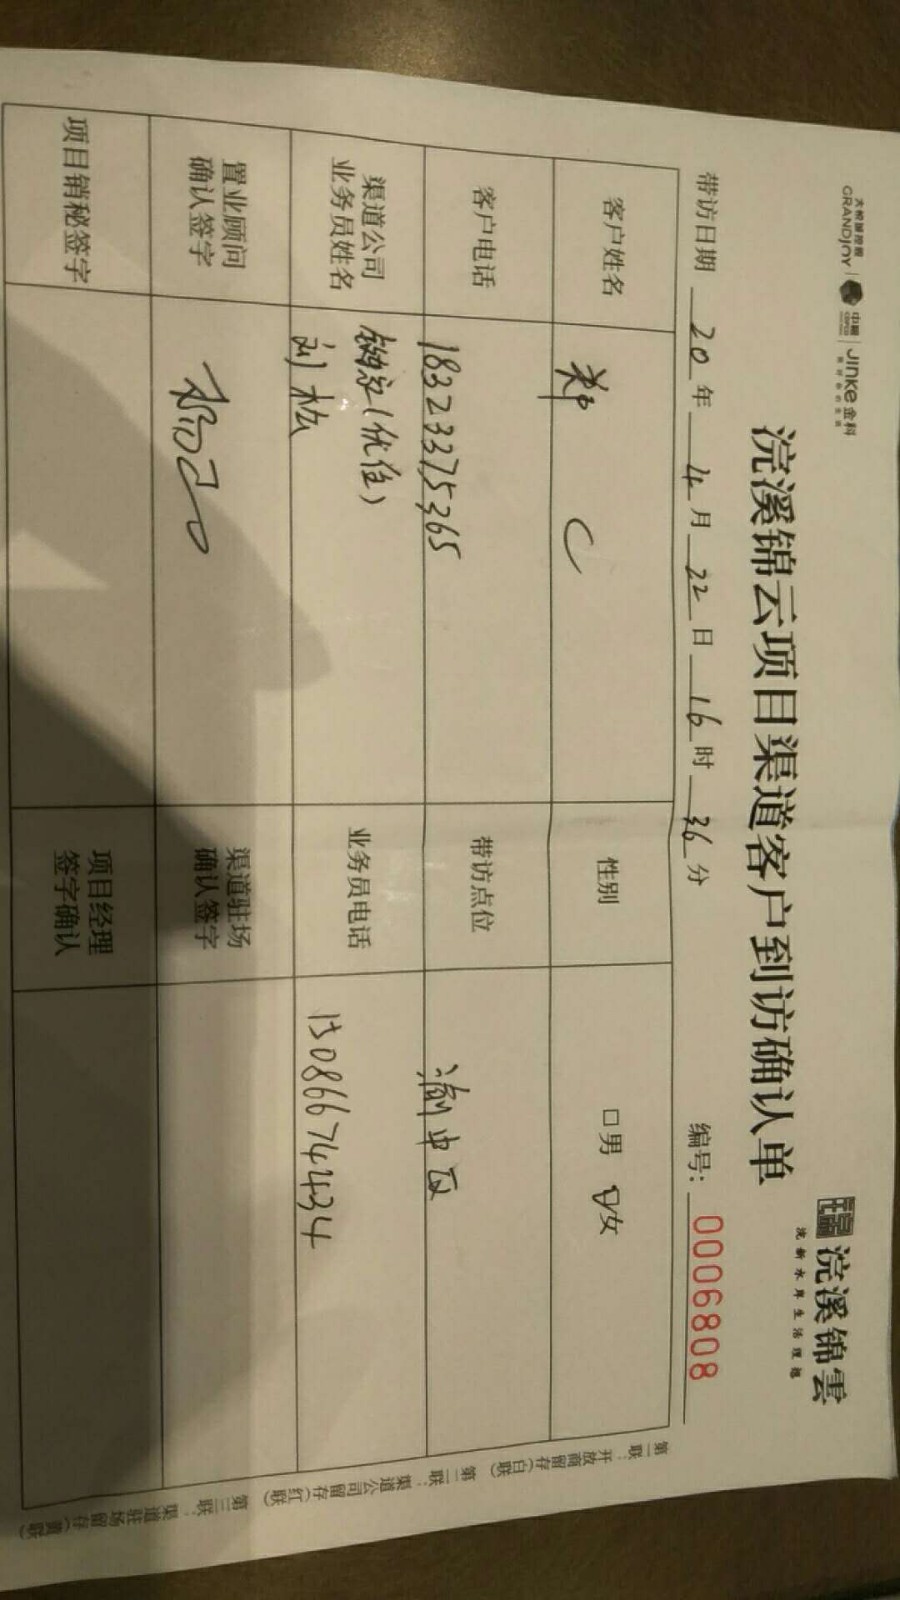 大悦城控股 GRANDJOY 中粮 COFCO JINKE 金科
浣溪锦雲
浣溪锦云项目渠道客户到访确认单
带访日期 20 年 4 月 22 日 16 时 36 分 编号: 0006808
客户姓名 郑 性别 □男 ☑女
客户电话 18323375365 带访点位 渝中区
渠道公司
业务员姓名 刘松 业务员电话 15086674434
置业顾问
确认签字
渠道驻场
确认签字
项目销秘签字
项目经理
签字确认
第一联：开放商留存（白联） 第二联：渠道公司留存（红联） 第三联：渠道驻场留存（黄联）